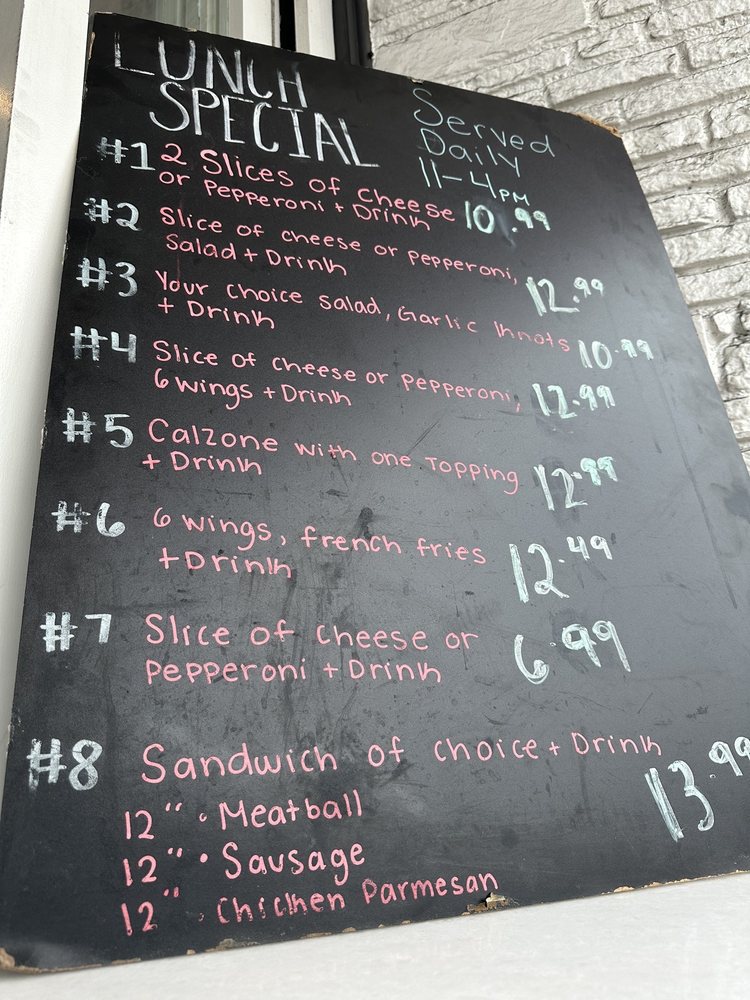 LUNCH
SPECIAL
Served
Daily
11-4PM
#1 2 Slices of cheese
or Pepperoni + Drink 10.99
#2 Slice of cheese or pepperoni,
Salad + Drink 12.99
#3 Your choice salad, Garlic knots
+ Drink 10.99
#4 Slice of cheese or pepperoni,
6 wings + Drink 12.99
#5 Calzone with one Topping
+ Drink 12.99
#6 6 wings, french fries
+ Drink 12.49
#7 Slice of cheese or
pepperoni + Drink 6.99
#8 Sandwich of choice + Drink 13.99
12" • Meatball
12" • Sausage
12" • Chicken Parmesan